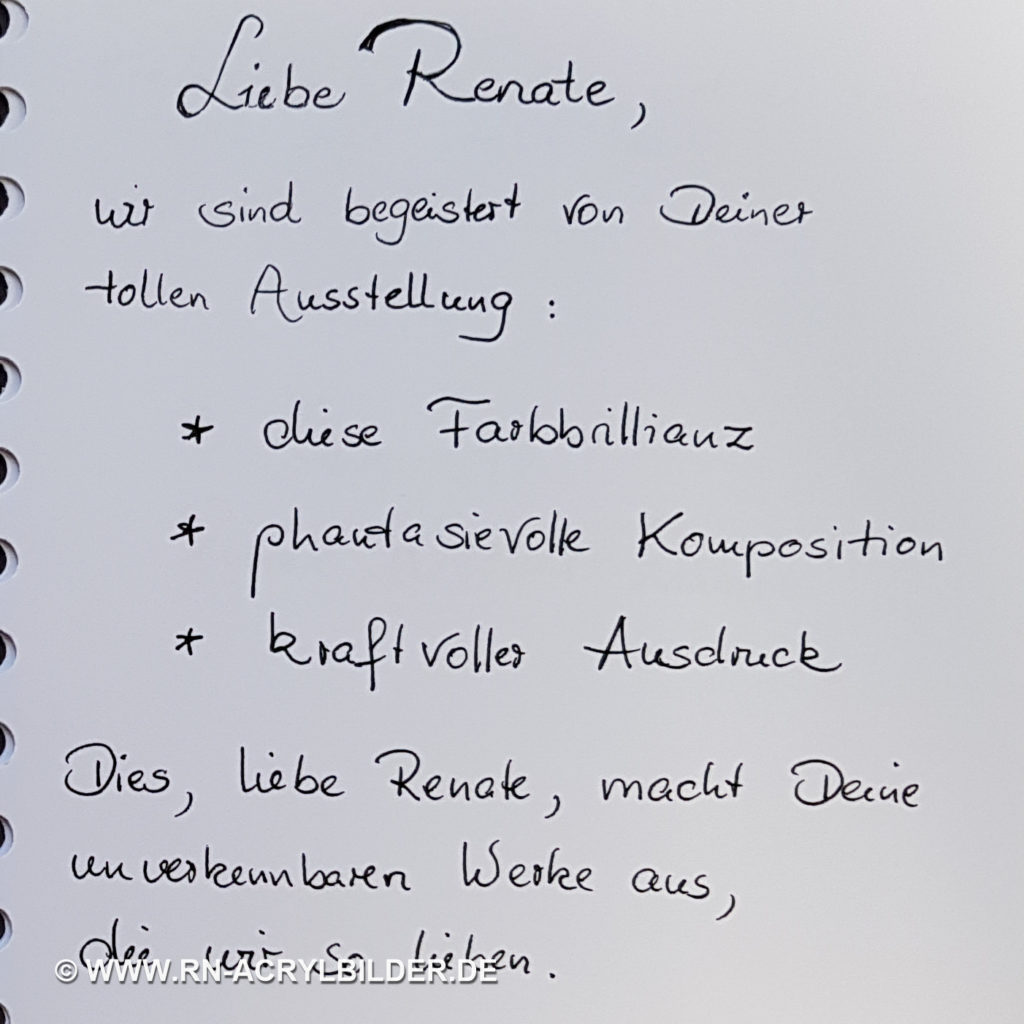 Liebe Renate,
wir sind begeistert von Deiner
tollen Ausstellung :
* diese Farbbrillianz
* phantasievolle Komposition
* kraftvoller Ausdruck
Dies, liebe Renate, macht Deine
unverkennbaren Werke aus,
die wir so lieben.
© WWW.RN-ACRYLBILDER.DE